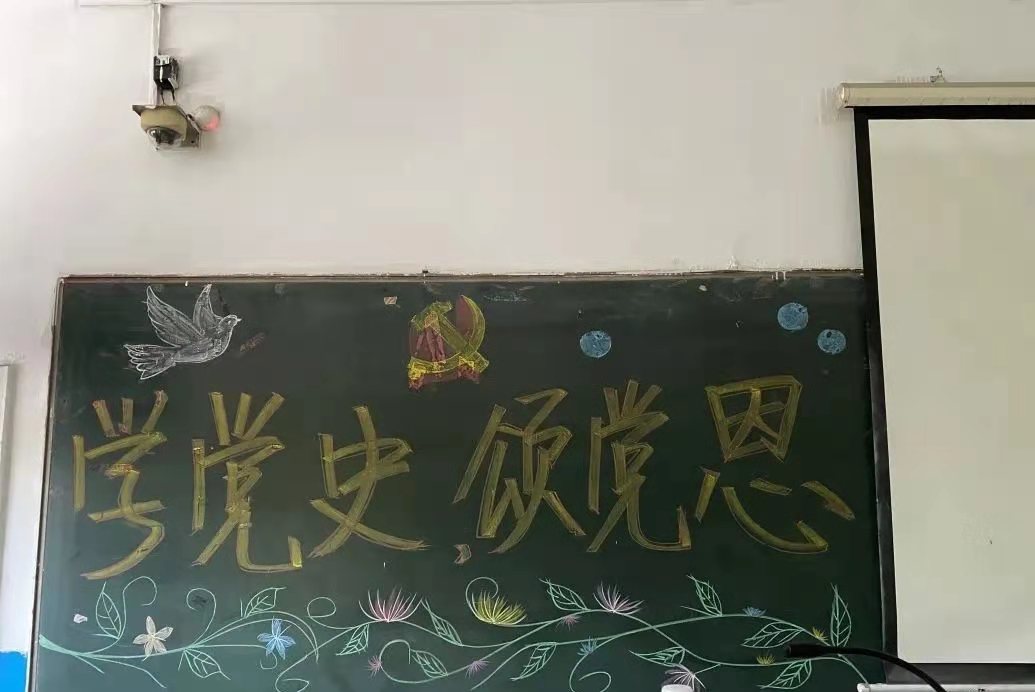 学党史 颂党恩